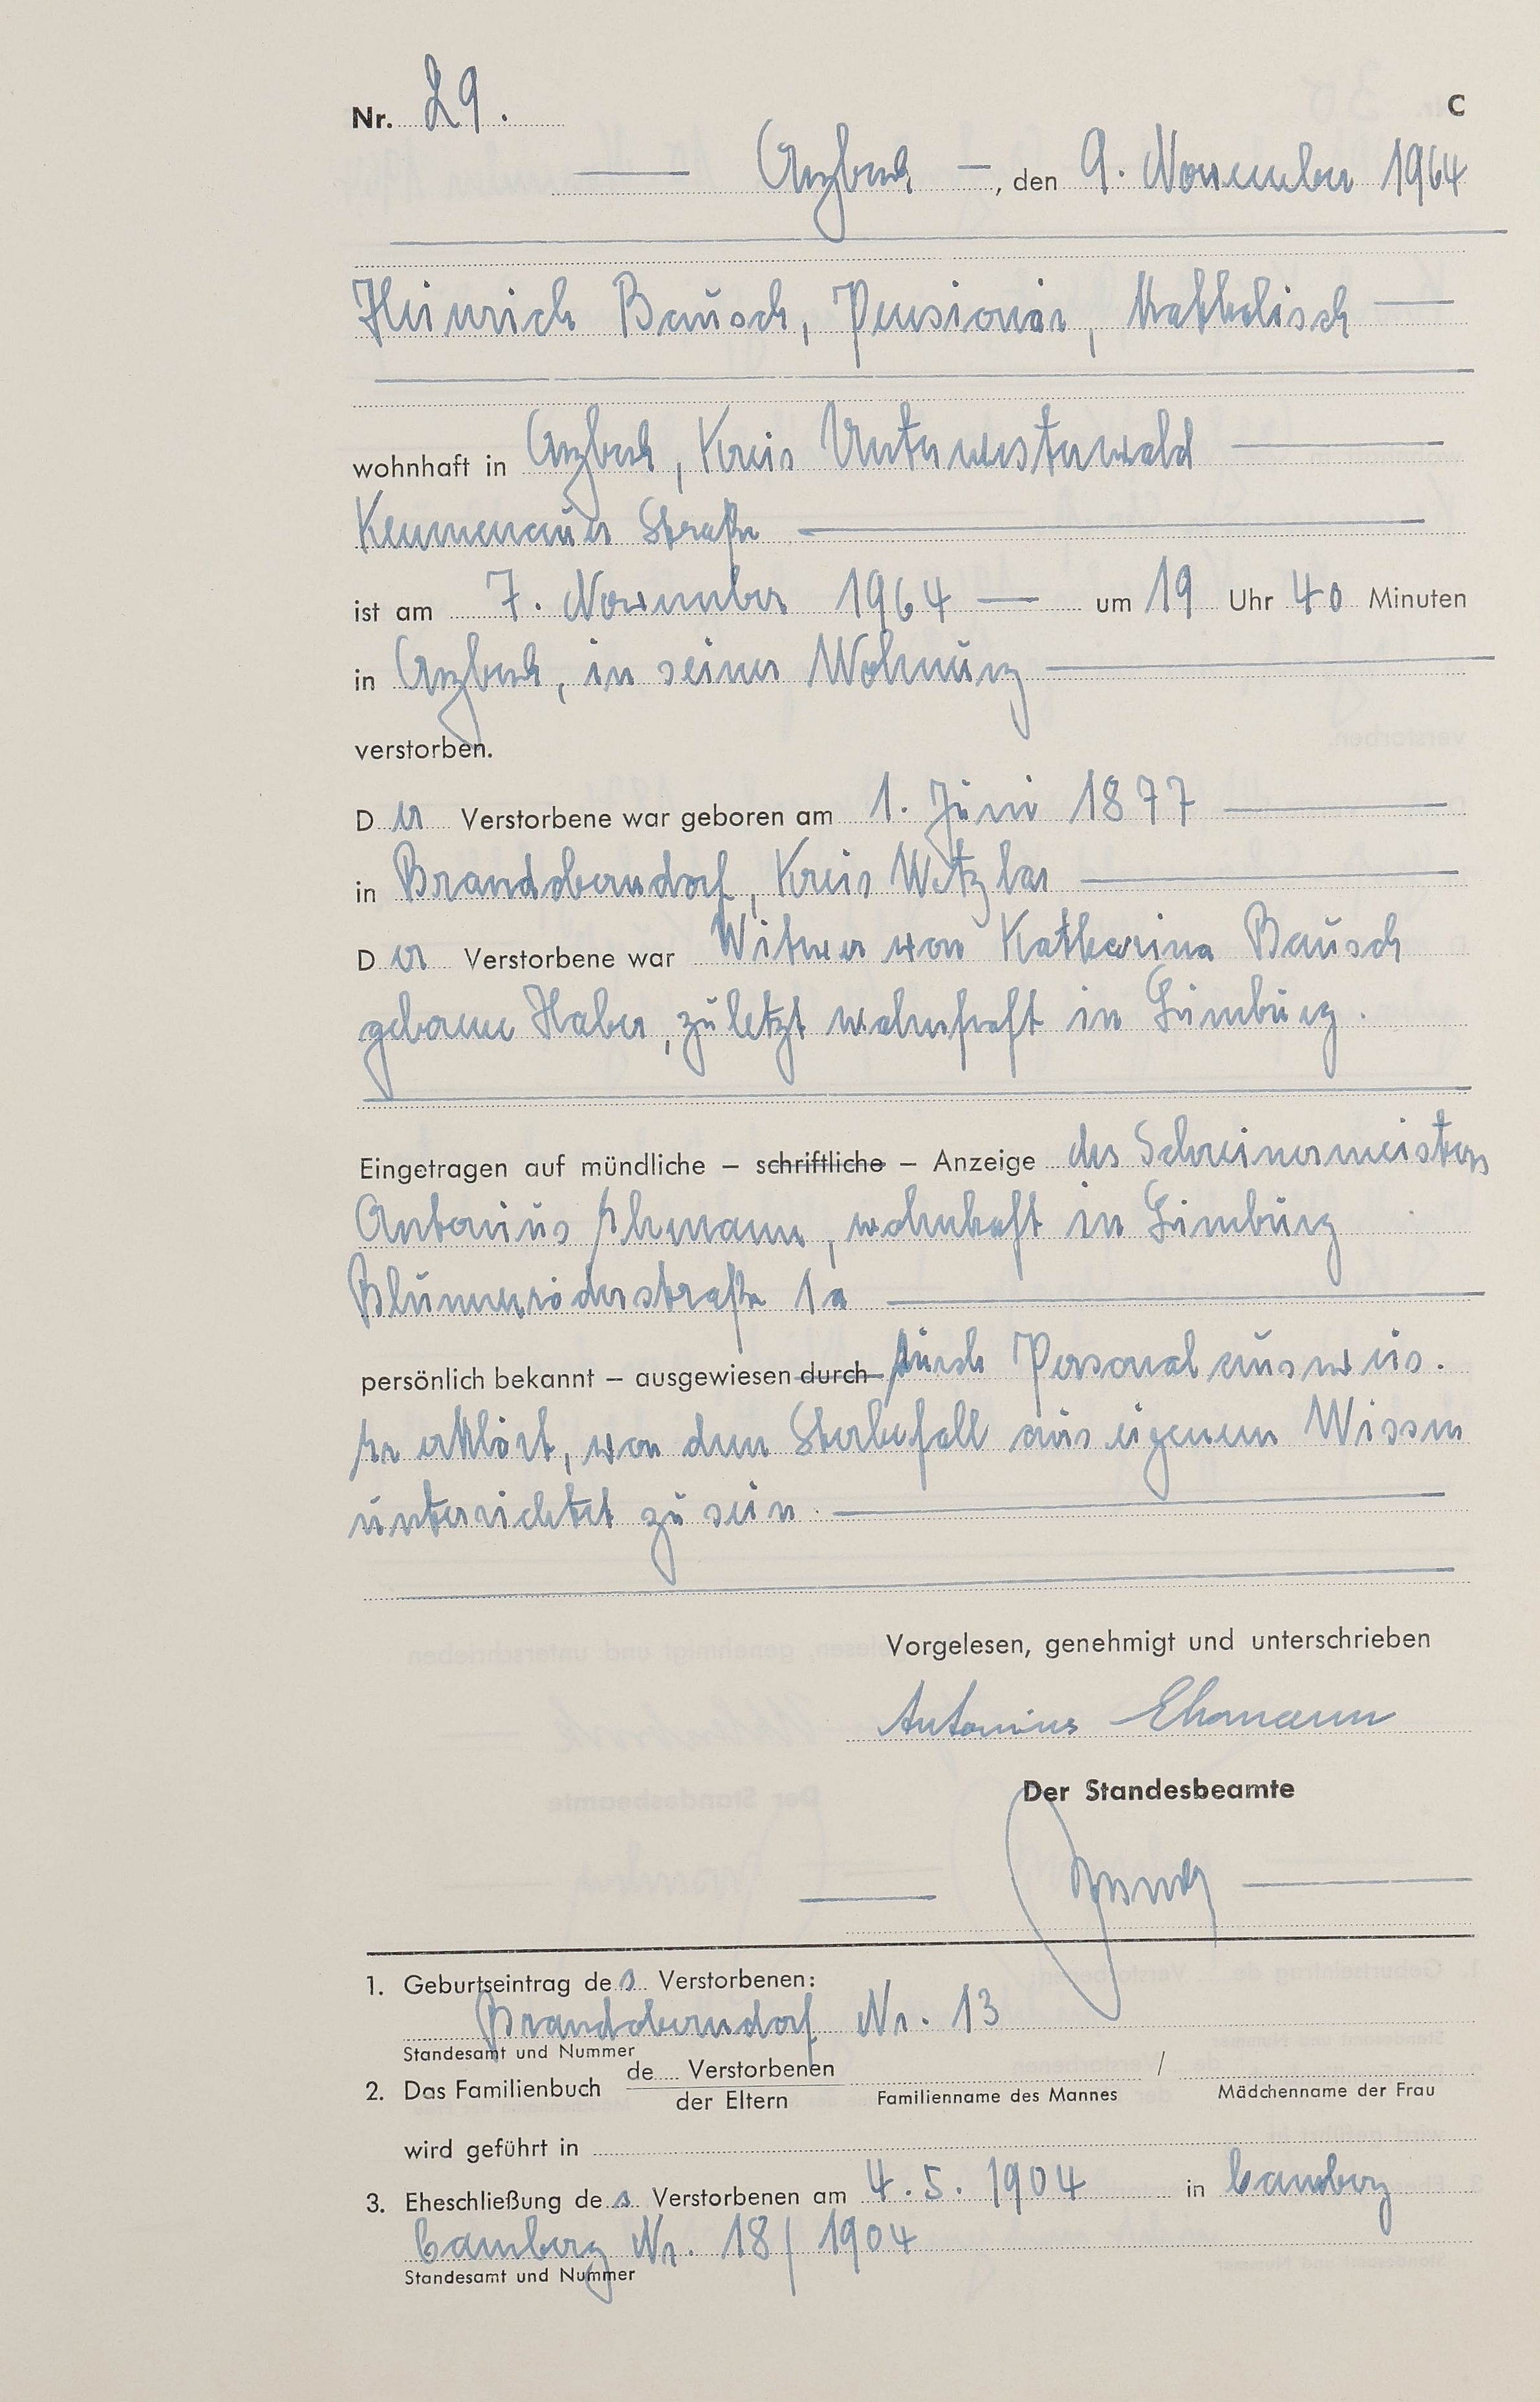 Nr. 29. C
Arzbach, den 9. November 1964
Heinrich Bausch, Pensionär, katholisch
wohnhaft in Arzbach, Kreis Unterwesterwald
Kemmenauer Straße
ist am 7. November 1964 um 19 Uhr 40 Minuten
in Arzbach, in seiner Wohnung
verstorben.
Der Verstorbene war geboren am 1. Juni 1877
in Brandoberndorf, Kreis Wetzlar
Der Verstorbene war Witwer von Katharina Bausch
geborene Haber, zuletzt wohnhaft in Limburg.
Eingetragen auf mündliche – schriftliche – Anzeige des Schreinermeisters
Antonius Ehmann, wohnhaft in Limburg
Blumenröderstraße 1a
persönlich bekannt – ausgewiesen durch durch Personalausweis.
Er erklärt, von dem Sterbefall aus eigenem Wissen
unterrichtet zu sein.
Vorgelesen, genehmigt und unterschrieben
Antonius Ehmann
Der Standesbeamte
1. Geburtseintrag des Verstorbenen:
Brandoberndorf Nr. 13
Standesamt und Nummer
de.... Verstorbenen /
2. Das Familienbuch der Eltern Familienname des Mannes Mädchenname der Frau
wird geführt in
3. Eheschließung des Verstorbenen am 4.5.1904 in Camberg
Camberg Nr. 18/1904
Standesamt und Nummer